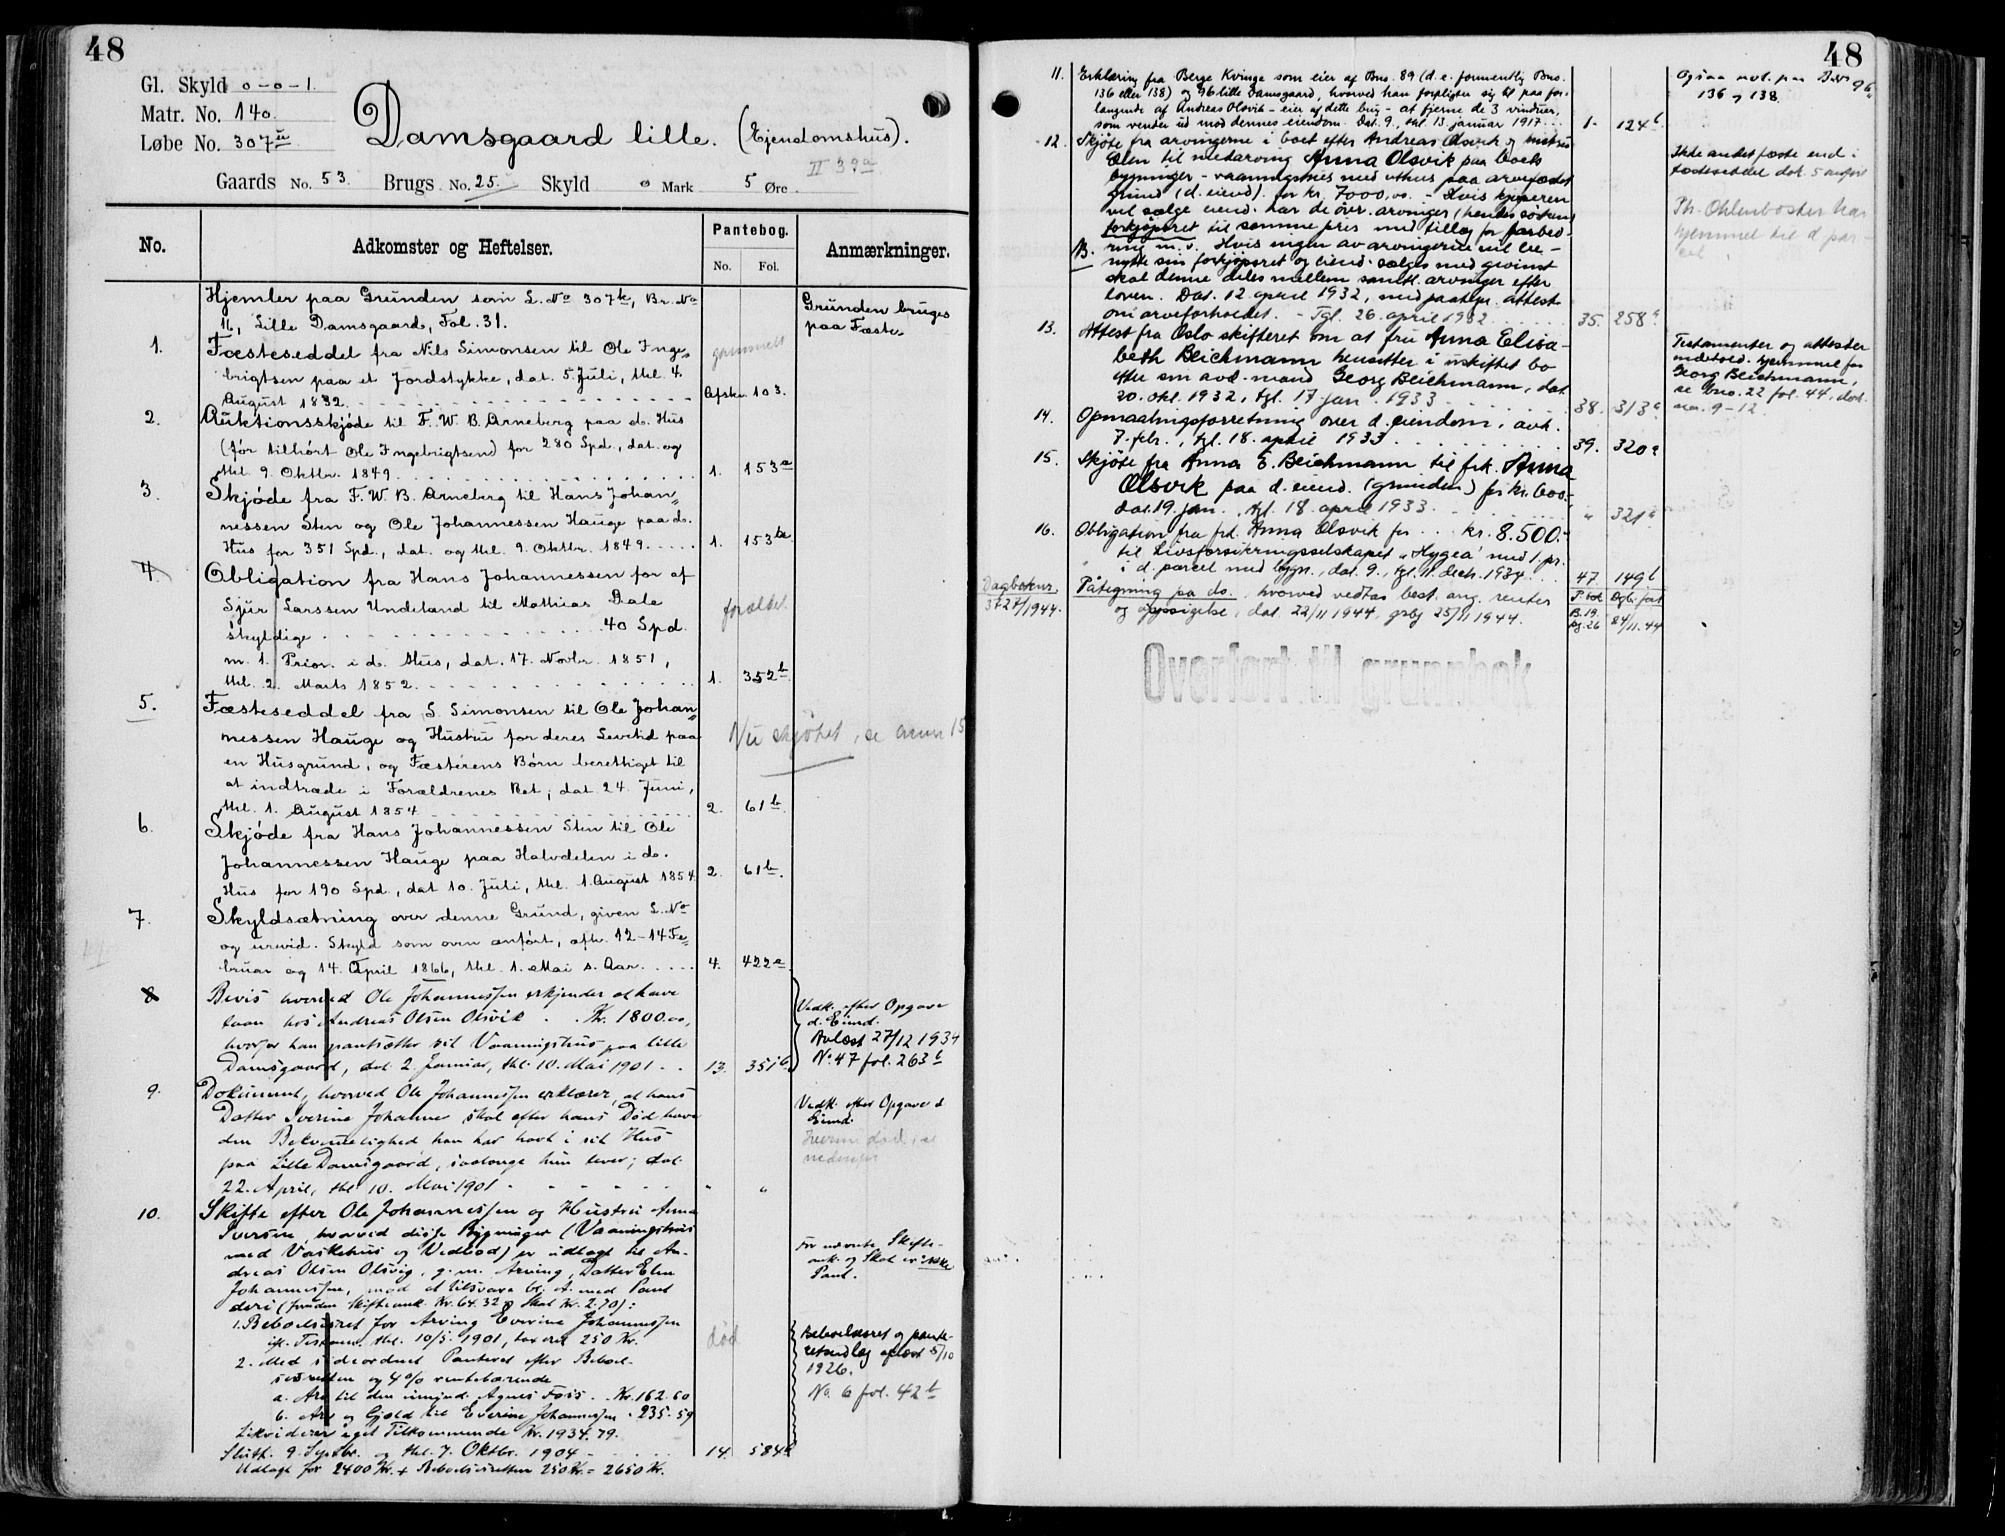 48
Gl. Skyld 0-0-1.
Matr. No. 140.
Løbe No. 307 u
Damsgaard lille. (Ejendomshus).
II 39a
Gaards No. 53. Brugs No. 25. Skyld 0 Mark 5 Øre.
No.
Adkomster og Heftelser.
Pantebog.
No. Fol.
Anmærkninger.
Hjemler paa Grunden som L. No 307k, Br. No
16, Lille Damsgaard, Fol. 31.
Grunden bruges
paa Fæste.
1. Fæsteseddel fra Nils Simonsen til Ole Inge„
brigtsen paa et Jordstykke, dat. 5. Juli, thl. 4.
August 1832.
gammelt
Afskr. 103.
2. Auktionsskjøde til F. W. B. Arneberg paa do. Hus
(før tilhørt Ole Ingebrigtsen) for 280 Spd., dat. og
thl. 9. Oktbr. 1849. 1. 153a
3. Skjøde fra F. W. B. Arneberg til Hans Johan„
nessen Sten og Ole Johannessen Hauge paa do.
Hus for 351 Spd., dat. og thl. 9. Oktbr. 1849. 1. 153b
4. Obligation fra Hans Johannessen for af
Sjur Larssen Undeland til Mathias Dale
skyldige 40 Spd.
m. 1. Prior. i do. Hus, dat. 17. Novbr. 1851,
thl. 2. Marts 1852. 1. 352b
forældet.
5. Fæsteseddel fra S. Simonsen til Ole Johan„
nessen Hauge og Hustru for deres Levetid paa
en Husgrund, og Fæsterens Børn berettiget til
at indtræde i Forældrenes Ret; dat. 24. Juni,
thl. 1. August 1854 2. 61b
Nu skjøtet, se anm 15
6. Skjøde fra Hans Johannessen Sten til Ole
Johannessen Hauge paa Halvdelen i do.
Hus for 190 Spd., dat 10. Juli, thl. 1. August 1854 2. 61b.
7. Skyldsætning over denne Grund, given L. No
og urevid. Skyld som oven anført, afh. 12-14 Fe„
bruar og 14. April 1866, thl. 1. Mai s. Aar. 4. 422a
8 Bevis hvorved Ole Johannessen erkjender at have
laant hos Andreas Olsen Olsvik Kr. 1800.00,
hvorfor han pantsætter sit Vaaningshus paa lille
Damsgaard, dat. 2. Januar, thl. 10. Mai 1901 13. 351b
Vedk. efter Opgave
d. Eiend.
Avlæst 27/12 1934
No 47 fol. 263b
9. Dokument, hvorved Ole Johannessen erklærer, at hans
Datter Iverine Johanne skal efter hans Død have
den Bekvemmelighed han har havt i sit Hus
paa Lille Damsgaard, saalænge hun lever; dat.
22. April, thl. 10. Mai 1901 " "
Vedk. efter Opgave d
Eiend.
Iverine død, se
nedenfor
10. Skifte efter Ole Johannessen og Hustru Anna
Iversen, hvorved disse Bygninger (Vaaningshus
med Vaskehus og Vedbod) er udlagt til An-
dreas Olsen Olsvig, g. m. Arving, Datter Elen
Johannessen, mod at tilsvare bl. A. med Pant
deri (foruden Skifteomk. Kr. 64.32 og Skat Kr. 2.70):
1. Beboelsesret for Arving Everine Johannessen
ifl. Testam. thl. 10/5. 1901, taxeret 250 Kr.
2. Med sideordnet Panteret efter Beboel-
sesretten og 4% rentebærende
a. Arv til den umynd. Agnes Fosis Kr. 162.60
b. Arv og Gjæld til Everine Johannessen 235.59
Likviderer eget Tilkommende Kr. 1934.79.
Slutt. 9. Septbr. og thl. 7. Oktbr. 1904 14. 584a
Udlagt for 2400 Kr. + Beboelsesretten 250 Kr. = 2650 Kr.
For nævnte Skifte-
omk. og Skat er ikke
Pant.
død
Beboelsesret og pante-
retsudlæg aflæst 5/10
1926.
No. 6 fol. 42b
48
11. Erklæring fra Berge Kvinge som eier af Bno. 89 (d. e. formentlig Bno.
136 eller 138) og 96 lille Damsgaard, hvorved han forpligter sig til paa for-
langende af Andreas Olsvik - eier af dette brug - at fjerne de 3 vinduer,
som vender ud mod dennes eiendom. Dat. 9., thl. 13. januar 1917 1. 124b
Ogsaa not. paa Bno 96,
136 og 138.
12. Skjøte fra arvingerne i boet efter Andreas Olsvik og hustru
Elen til medarving Anna Olsvik paa boets
bygninger - vaaningshus med uthus paa arvefæstet
grund (d. eiend). for kr. 7000,00. - Hvis kjøperen
vil sælge eiend. har de øvr. arvinger (hendes søsken)
forkjøpsret til samme pris med tillæg for forbed-
B. ring m. v. Hvis ingen av arvingerne vil be-
nytte sin forkjøpsret og eiend. sælges med gevinst
skal denne deles mellem samtl. arvinger efter
loven. Dat. 12 april 1932, med paategn. attest
om arveforholdet. - Tgl. 26. april 1932 35. 258a
Ikke andet fæste end i
fæsteseddel dok. 5 anført
Th. Ohlenbosten har
hjemmel til d par-
cel.
13. Attest fra Oslo skifteret om at fru Anna Elisa-
beth Beichmann hensitter i uskiftet bo
efter sin avd. mand Georg Beichmann, dat.
20. okt. 1932, tgl. 17 jan. 1933 38. 313a
Testamenter og attester
indehold. hjemmel for
Georg Beichmann,
se bno. 22 fol. 44, dok.
no. 9-12
14. Opmaalingsforretning over d. eiendom, avh.
7. febr., tgl. 18. april 1933 39. 320a
15. Skjøte fra Anna E. Beichmann til frk. Anna
Olsvik paa d. eiend. (grunden) for kr. 600.-,
dat. 19. jan., tgl. 18. april 1933. " 321a
16. Obligation fra frk. Anna Olsvik for kr. 8.500.-
til Livsforsikringsselskapet „Hygea" med 1. pr.
i d. parcel med bygn., dat. 9., tgl. 11. decb. 1934. 47. 149b
Dagboknr.
3727/1944.
Påtegning på do., hvorved vedtas best. ang. renter
og oppsigelse, dat. 22/11 1944, grbg 25/11 1944.
P. bok Dgb. ført
B. 19.
pg. 26 24/11.44
Overført til grunnbok